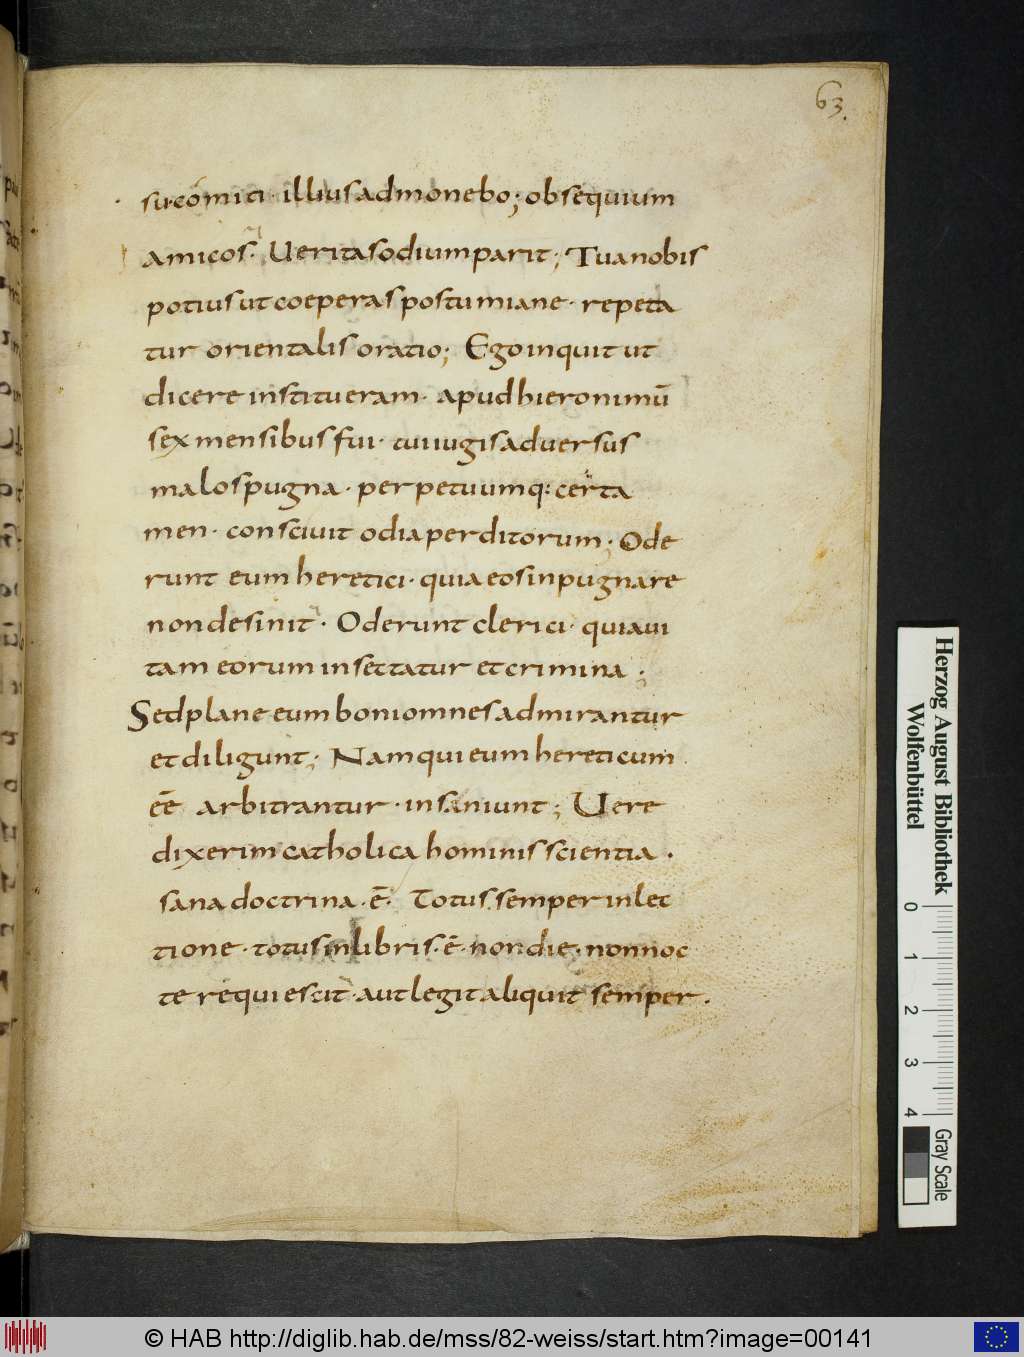 63.
su comici · illius admonebo; obsequium
amicos · Ueritas odium parit; Tua nobis
potius ut coeperas postumiane · repeta
tur orientalis oratio; Ego inquit ut
dicere institueram · apud hieronimū
sex mensibus fui · cui iugis aduersus
malos pugna · perpetuumq: certa
men · conscivit odia perditorum; Ode
runt eum heretici · quia eos inpugnare
non desinit · Oderunt clerici · quia ui
tam eorum insectatur et crimina;
Sed plane eum boni omnes admirantur
et diligunt; Nam qui eum hereticum
eē arbitrantur · insaniunt; Uere
dixerim catholica hominis scientia ·
sana doctrina · ē · Totus semper in lec
tione · totus in libris · ē · non die · non noc
te requiescit · aut legit aliquit semper ·
Herzog August Bibliothek
Wolfenbüttel
0 1 2 3 4
Gray Scale
© HAB http://diglib.hab.de/mss/82-weiss/start.htm?image=00141